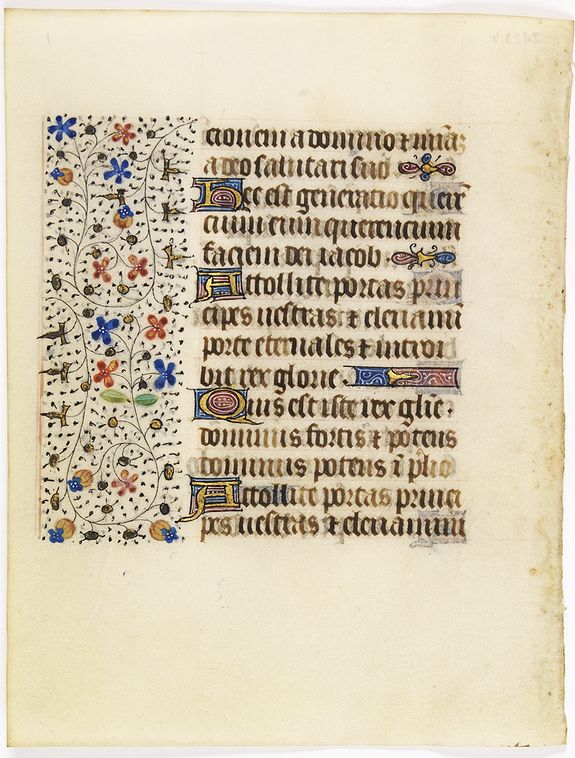 cionem a domino ⁊ mĩa
a deo salutari suo
Hec est generatio querẽ
cium eum querencium
faciem dei iacob
Attollite portas prin
cipes uestras ⁊ eleuamĩ
porte eternales ⁊ introi
bit rex glorie.
Quis est iste rex glĩe.
dominus fortis ⁊ potens
dominus potens ĩ p̃lio
Attollite portas princi
pes uestras ⁊ eleuamini